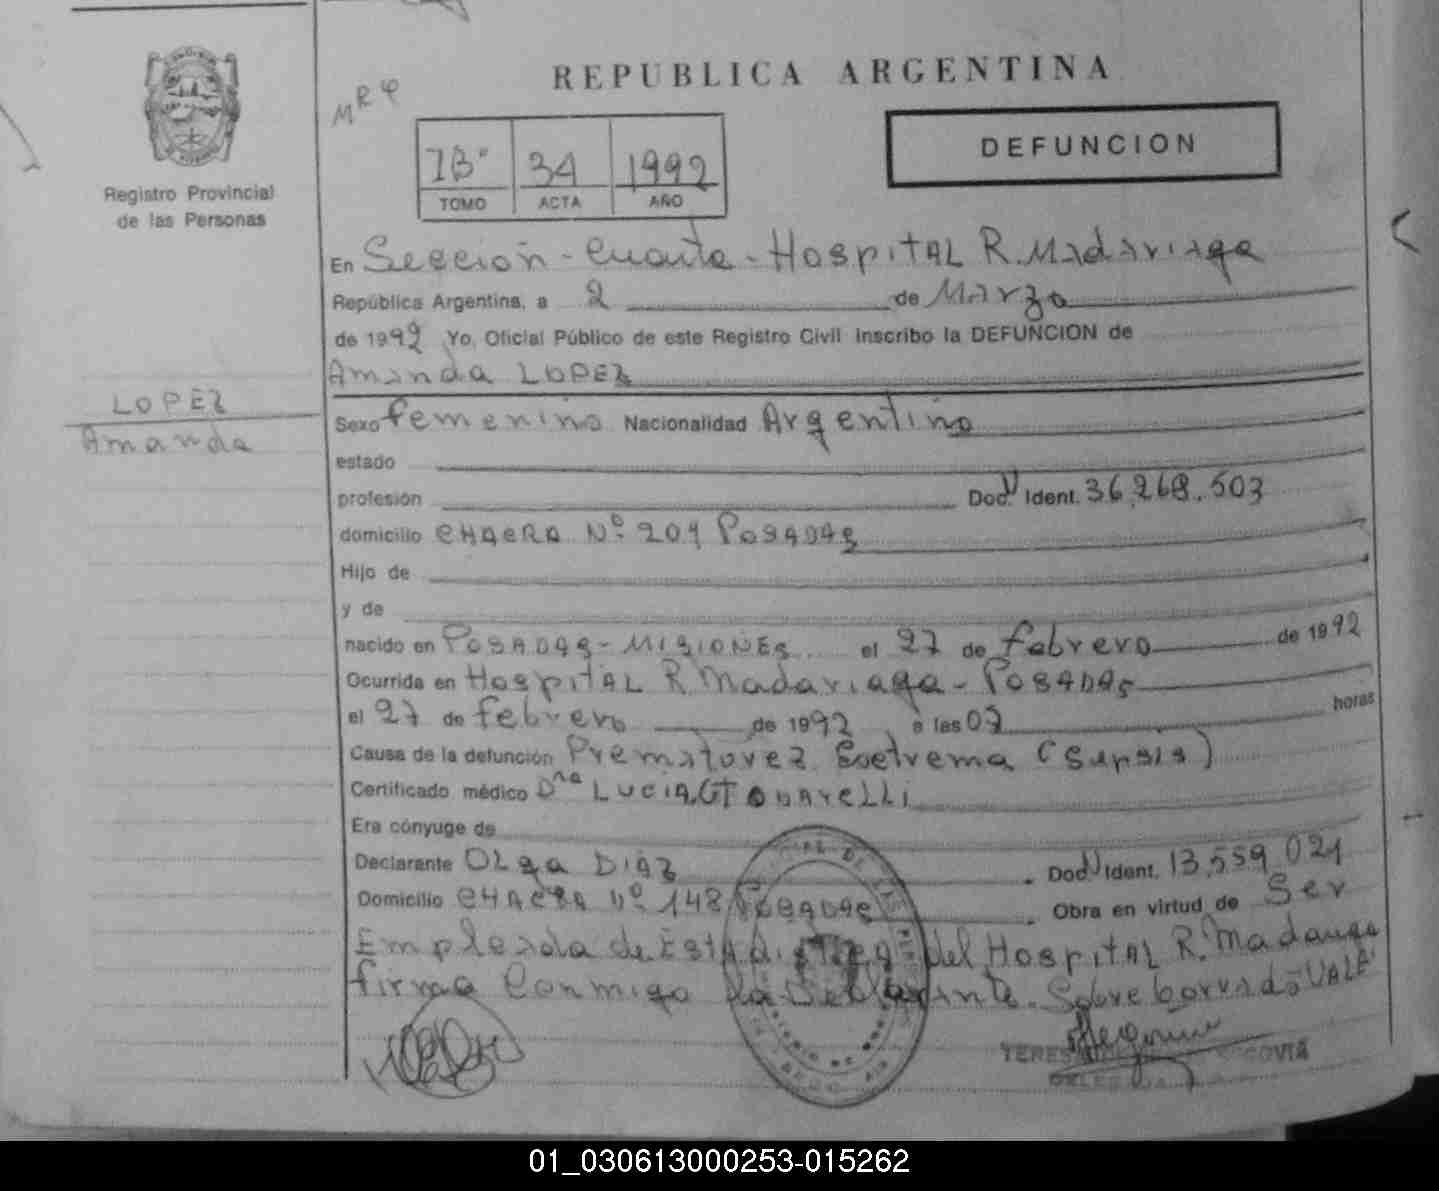 REPUBLICA ARGENTINA
MRP
DEFUNCION
Registro Provincial
de las Personas
1B° 34 1992
TOMO ACTA AÑO
En Sección - Cuarta - HospitAL R. Madariaga
República Argentina, a 2 de Marzo
de 1992 Yo, Oficial Público de este Registro Civil inscribo la DEFUNCION de
Amanda LOPEZ
LOPEZ
Amanda
Sexo femenino Nacionalidad Argentino
estado
profesión Doc. Ident. 36.268.503
domicilio CHACRA Nº 201 POSADAS
Hijo de
y de
nacido en POSADAS - MISIONES el 27 de febrero de 1992
Ocurrida en HospitAL R. Madariaga - POSADAS
el 27 de febrero de 1992 a las 07 horas
Causa de la defunción Prematurez Extrema (Sepsis)
Certificado médico Dra LUCIA
Era cónyuge de
Declarante OLga DIAZ Doc. Ident. 13.559.021
Domicilio CHACRA Nº 148 POSADAS Obra en virtud de Ser
Empleada de Estadistica del HospitAL R. Madariaga
firma Conmigo la Declarante. Sobre borrado VALE
01_030613000253-015262